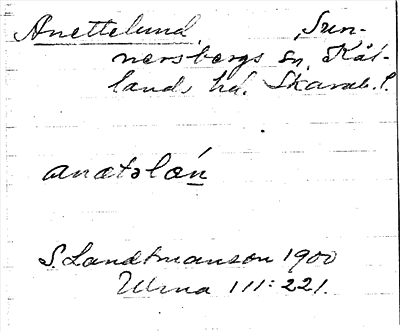 Anettelund, Sun-
nersbergs sn, Kål-
lands hd. Skarab. l.
anatəlón
S. Landtmanson 1900
Ulma 111:221.